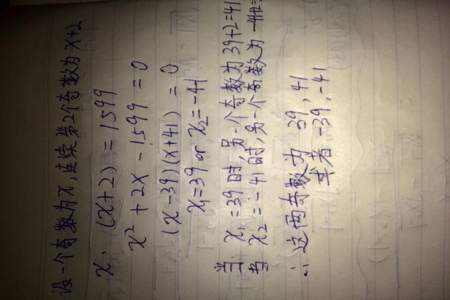 设一个奇数为x,连续第2个奇数为x+2
x·(x+2)=1599
x²+2x-1599=0
(x-39)(x+41)=0
x₁=39 or x₂=-41
当 x₁=39时,另一个奇数为39+2=41
当 x₂=-41时,另一个奇数为-41+2=
∴这两奇数为 39,41
或者 -39,-41